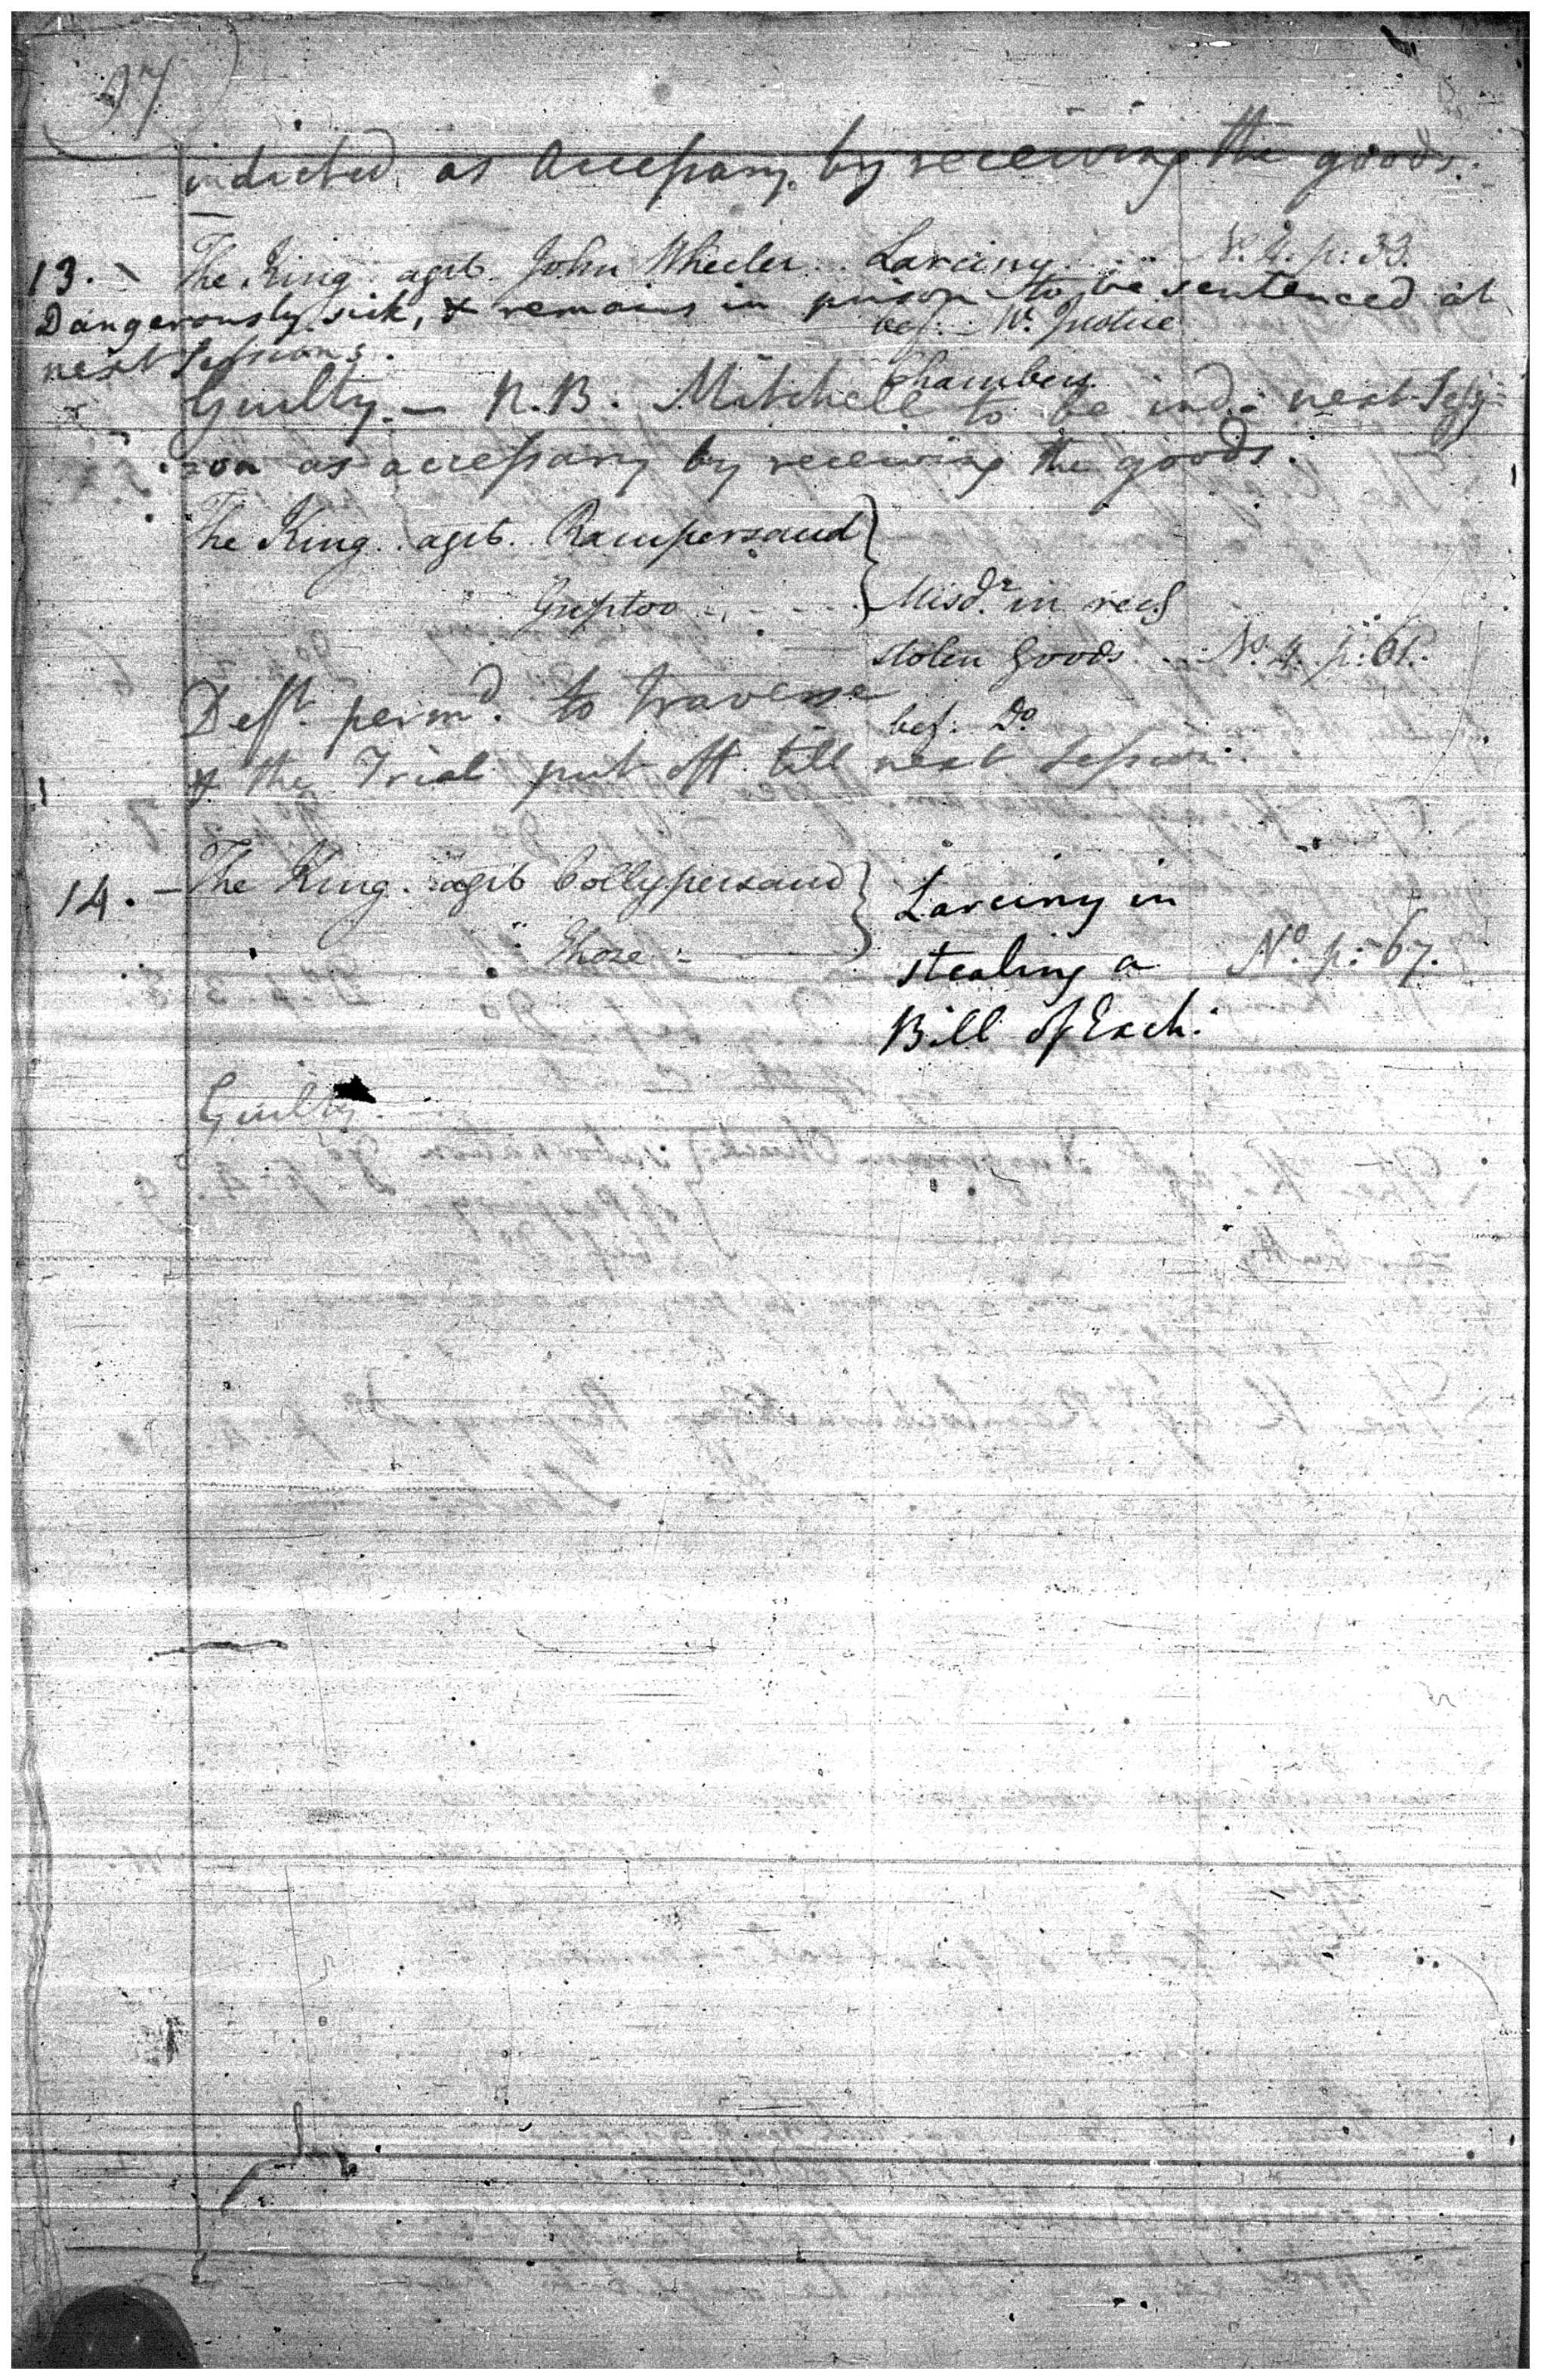 97
indicted as accessary by receiving the goods.
13. The King agst. John Wheeler.. Larciny.... No. 4. p: 33.
Dangerously sick, & remains in prison to be sentenced at
bef: Mr. Justice
next Sessions.
Chambers
Guilty. — N.B. Mitchell to be ind. next Sess-
-ion as accessary by receiving the goods.
The King. agst. Rampersaud
Guptoo - - - - Misdr. in recg
stolen Goods. .. No. 4. p: 61.
Deft. permd. to traverse
bef: Do
& the Trial put off till next Session.
14. - The King. agst Collypersaud Larciny in
Ghose - stealing a No. p: 67.
Bill of Exch:
Guilty.